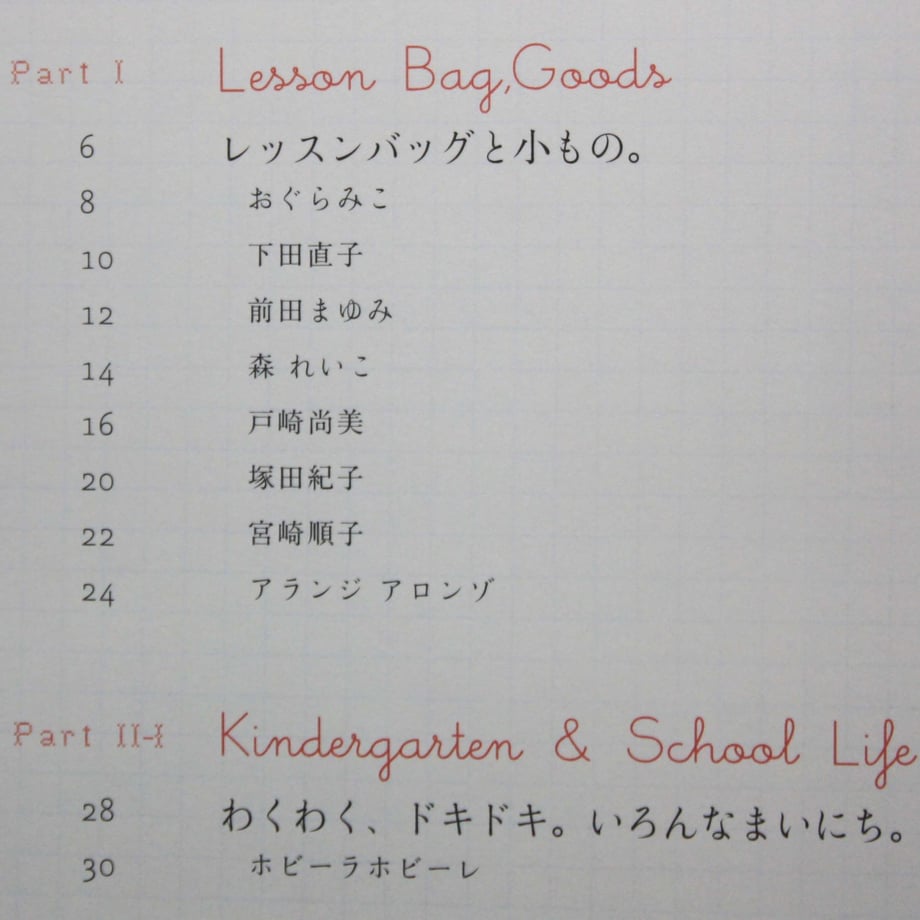 Part I Lesson Bag,Goods
6 レッスンバッグと小もの。
8 おぐらみこ
10 下田直子
12 前田まゆみ
14 森 れいこ
16 戸崎尚美
20 塚田紀子
22 宮崎順子
24 アランジ アロンゾ
Part II-I Kindergarten & School Life
28 わくわく、ドキドキ。いろんなまいにち。
30 ホビーラホビーレ